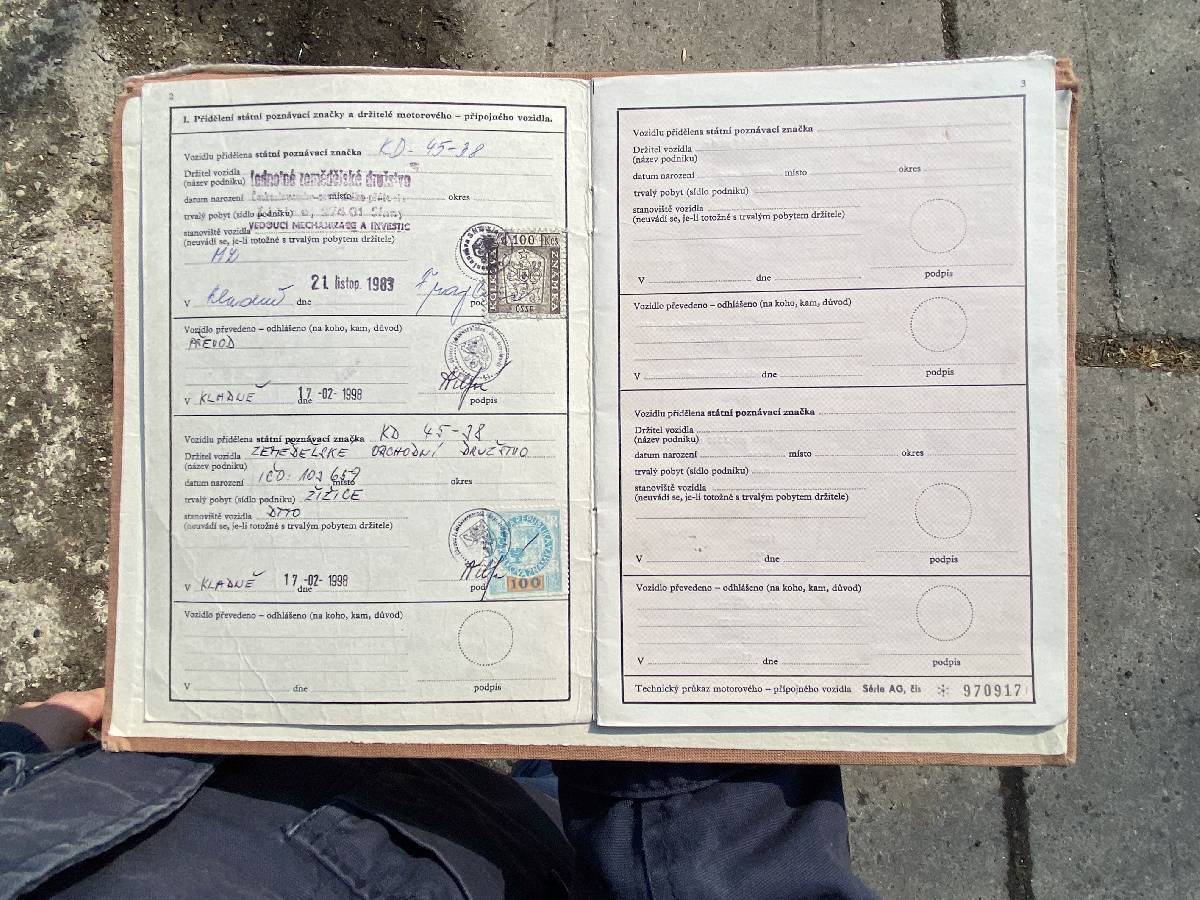 2
I. Přidělení státní poznávací značky a držitelé motorového – přípojného vozidla.
Vozidlu přidělena státní poznávací značka KD - 45-38
Držitel vozidla
(název podniku) Jednotné zemědělské družstvo
datum narození místo okres
trvalý pobyt (sídlo podniku)
stanoviště vozidla VEDOUCÍ MECHANIZACE A INVESTIC
(neuvádí se, je-li totožné s trvalým pobytem držitele)
V Kladně dne 21. listop. 1983
100 Kčs
ZNÁMKA
ČSSR
Vozidlo převedeno – odhlášeno (na koho, kam, důvod)
PŘEVOD
V KLADNĚ dne 17 -02- 1998 podpis
Vozidlu přidělena státní poznávací značka KD 45-38
Držitel vozidla ZEMĚDĚLSKÉ OBCHODNÍ DRUŽSTVO
(název podniku)
datum narození IČO: místo okres
trvalý pobyt (sídlo podniku) ŽIŽICE
stanoviště vozidla DTTO
(neuvádí se, je-li totožné s trvalým pobytem držitele)
V KLADNĚ dne 17 -02- 1998
100
Vozidlo převedeno – odhlášeno (na koho, kam, důvod)
V dne podpis
3
Vozidlu přidělena státní poznávací značka
Držitel vozidla
(název podniku)
datum narození místo okres
trvalý pobyt (sídlo podniku)
stanoviště vozidla
(neuvádí se, je-li totožné s trvalým pobytem držitele)
V dne podpis
Vozidlo převedeno – odhlášeno (na koho, kam, důvod)
V dne podpis
Vozidlu přidělena státní poznávací značka
Držitel vozidla
(název podniku)
datum narození místo okres
trvalý pobyt (sídlo podniku)
stanoviště vozidla
(neuvádí se, je-li totožné s trvalým pobytem držitele)
V dne podpis
Vozidlo převedeno – odhlášeno (na koho, kam, důvod)
V dne podpis
Technický průkaz motorového – přípojného vozidla Série AG, čís 970917